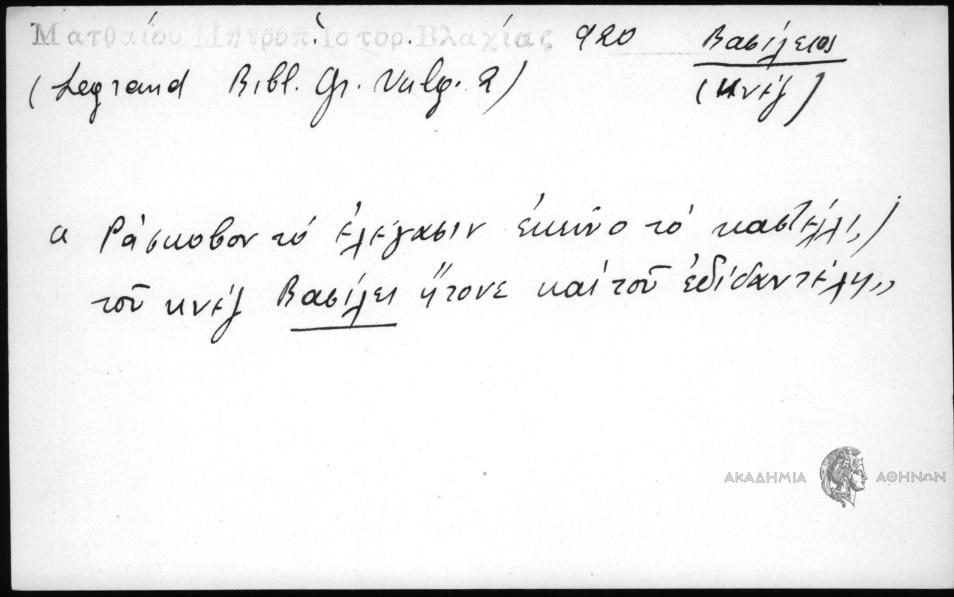 Ματθαίου Μητροπ. Ἱστορ. Βλαχίας 920 Βασίλειος
(Legrand Bibl. Gr. Vulg. 2) (κνέζ)
« Ράσκοβον τό ἐλέγασιν ἐκεῖνο τό καστέλλι, /
τοῦ κνέζ Βασίλει ἤτονε καί τοῦ ἐδίδαν τέλη »
ΑΚΑΔΗΜΙΑ ΑΘΗΝΩΝ